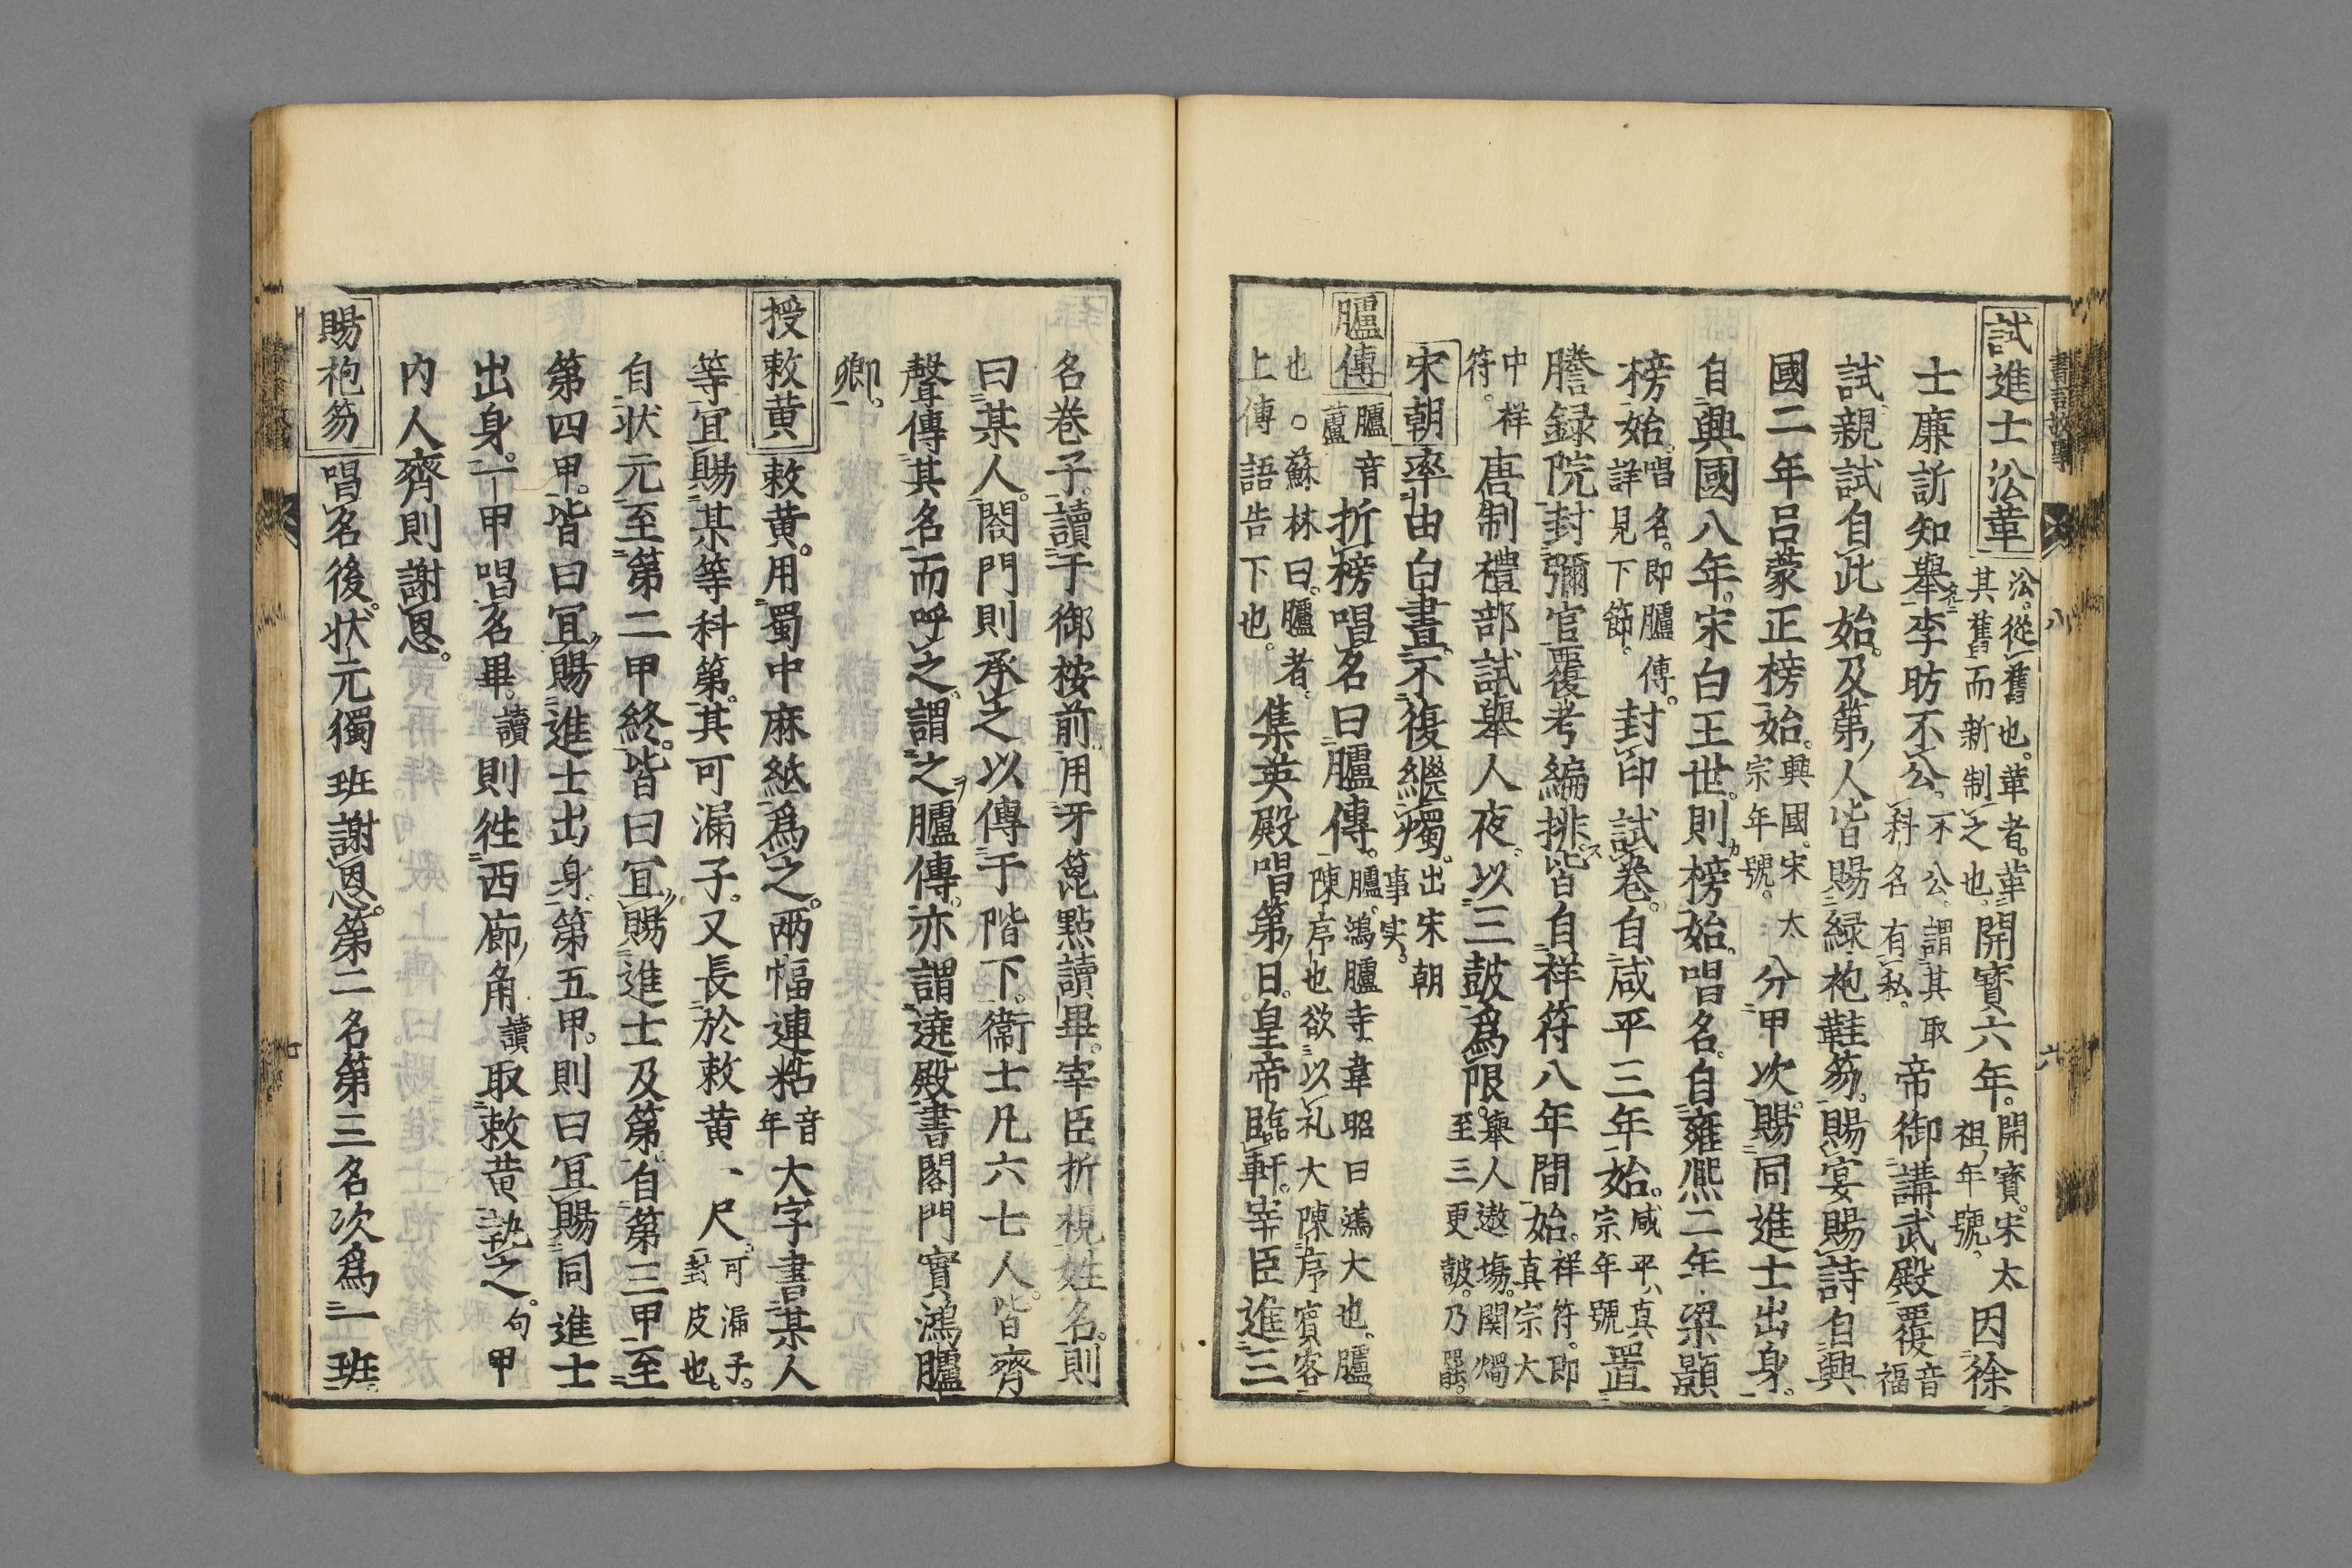 試進士㳂革 㳂從舊也革者革其舊而新制之也 開寳六年 開寳宋太祖年號 因徐
士廉訢知舉李昉不公 不公謂其取科名有私 帝御講武殿覆 音福
試親試自此始及第人皆賜緑袍鞋笏賜宴賜詩自興
國二年吕蒙正榜始 興國宋太宗年號 分甲次賜同進士出身
自興國八年宋白王世則榜始唱名自雍熈二年梁顥
榜始 唱名即臚傳詳見下節 封印試卷自咸平三年始 咸平真宗年號 置
謄録院封彌官覆考編排皆自祥符八年間始 祥符即真宗大
中祥符 唐制禮部試舉人夜以三皷爲限 舉人遨場関燭至三更皷乃罷
宋朝率由白晝不復繼燭 出宋朝事实
臚傳 臚音蘆 折榜唱名曰臚傳 臚鴻臚寺韋昭曰鴻大也臚陳序也欲以礼大陳序賓客
也○蘇林曰臚者上傳語告下也 集英殿唱第日皇帝臨軒宰臣進三
名卷子讀于御桉前用牙箆點讀畢宰臣折視姓名則
曰某人閤門則承之以傳于階下衞士凡六七人皆齊
聲傳其名而呼之謂之臚傳亦謂遶殿書閤門實鴻臚
卿
授敕黄 敕黄用蜀中麻紙爲之兩幅連粘 音年 大字書某人
等宜賜某等科第其可漏子又長於敕黄、尺 可漏子封皮也
自状元至第二甲終皆曰冝賜進士及第自第三甲至
第四甲皆曰冝賜進士出身第五甲則曰冝賜同進士
出身一甲唱名畢 讀 則徃西廊角 讀 取敕黄執之 句 甲
内人齊則謝恩
賜袍笏 唱名後状元獨班謝恩第二名第三名次爲一班
八
六
七